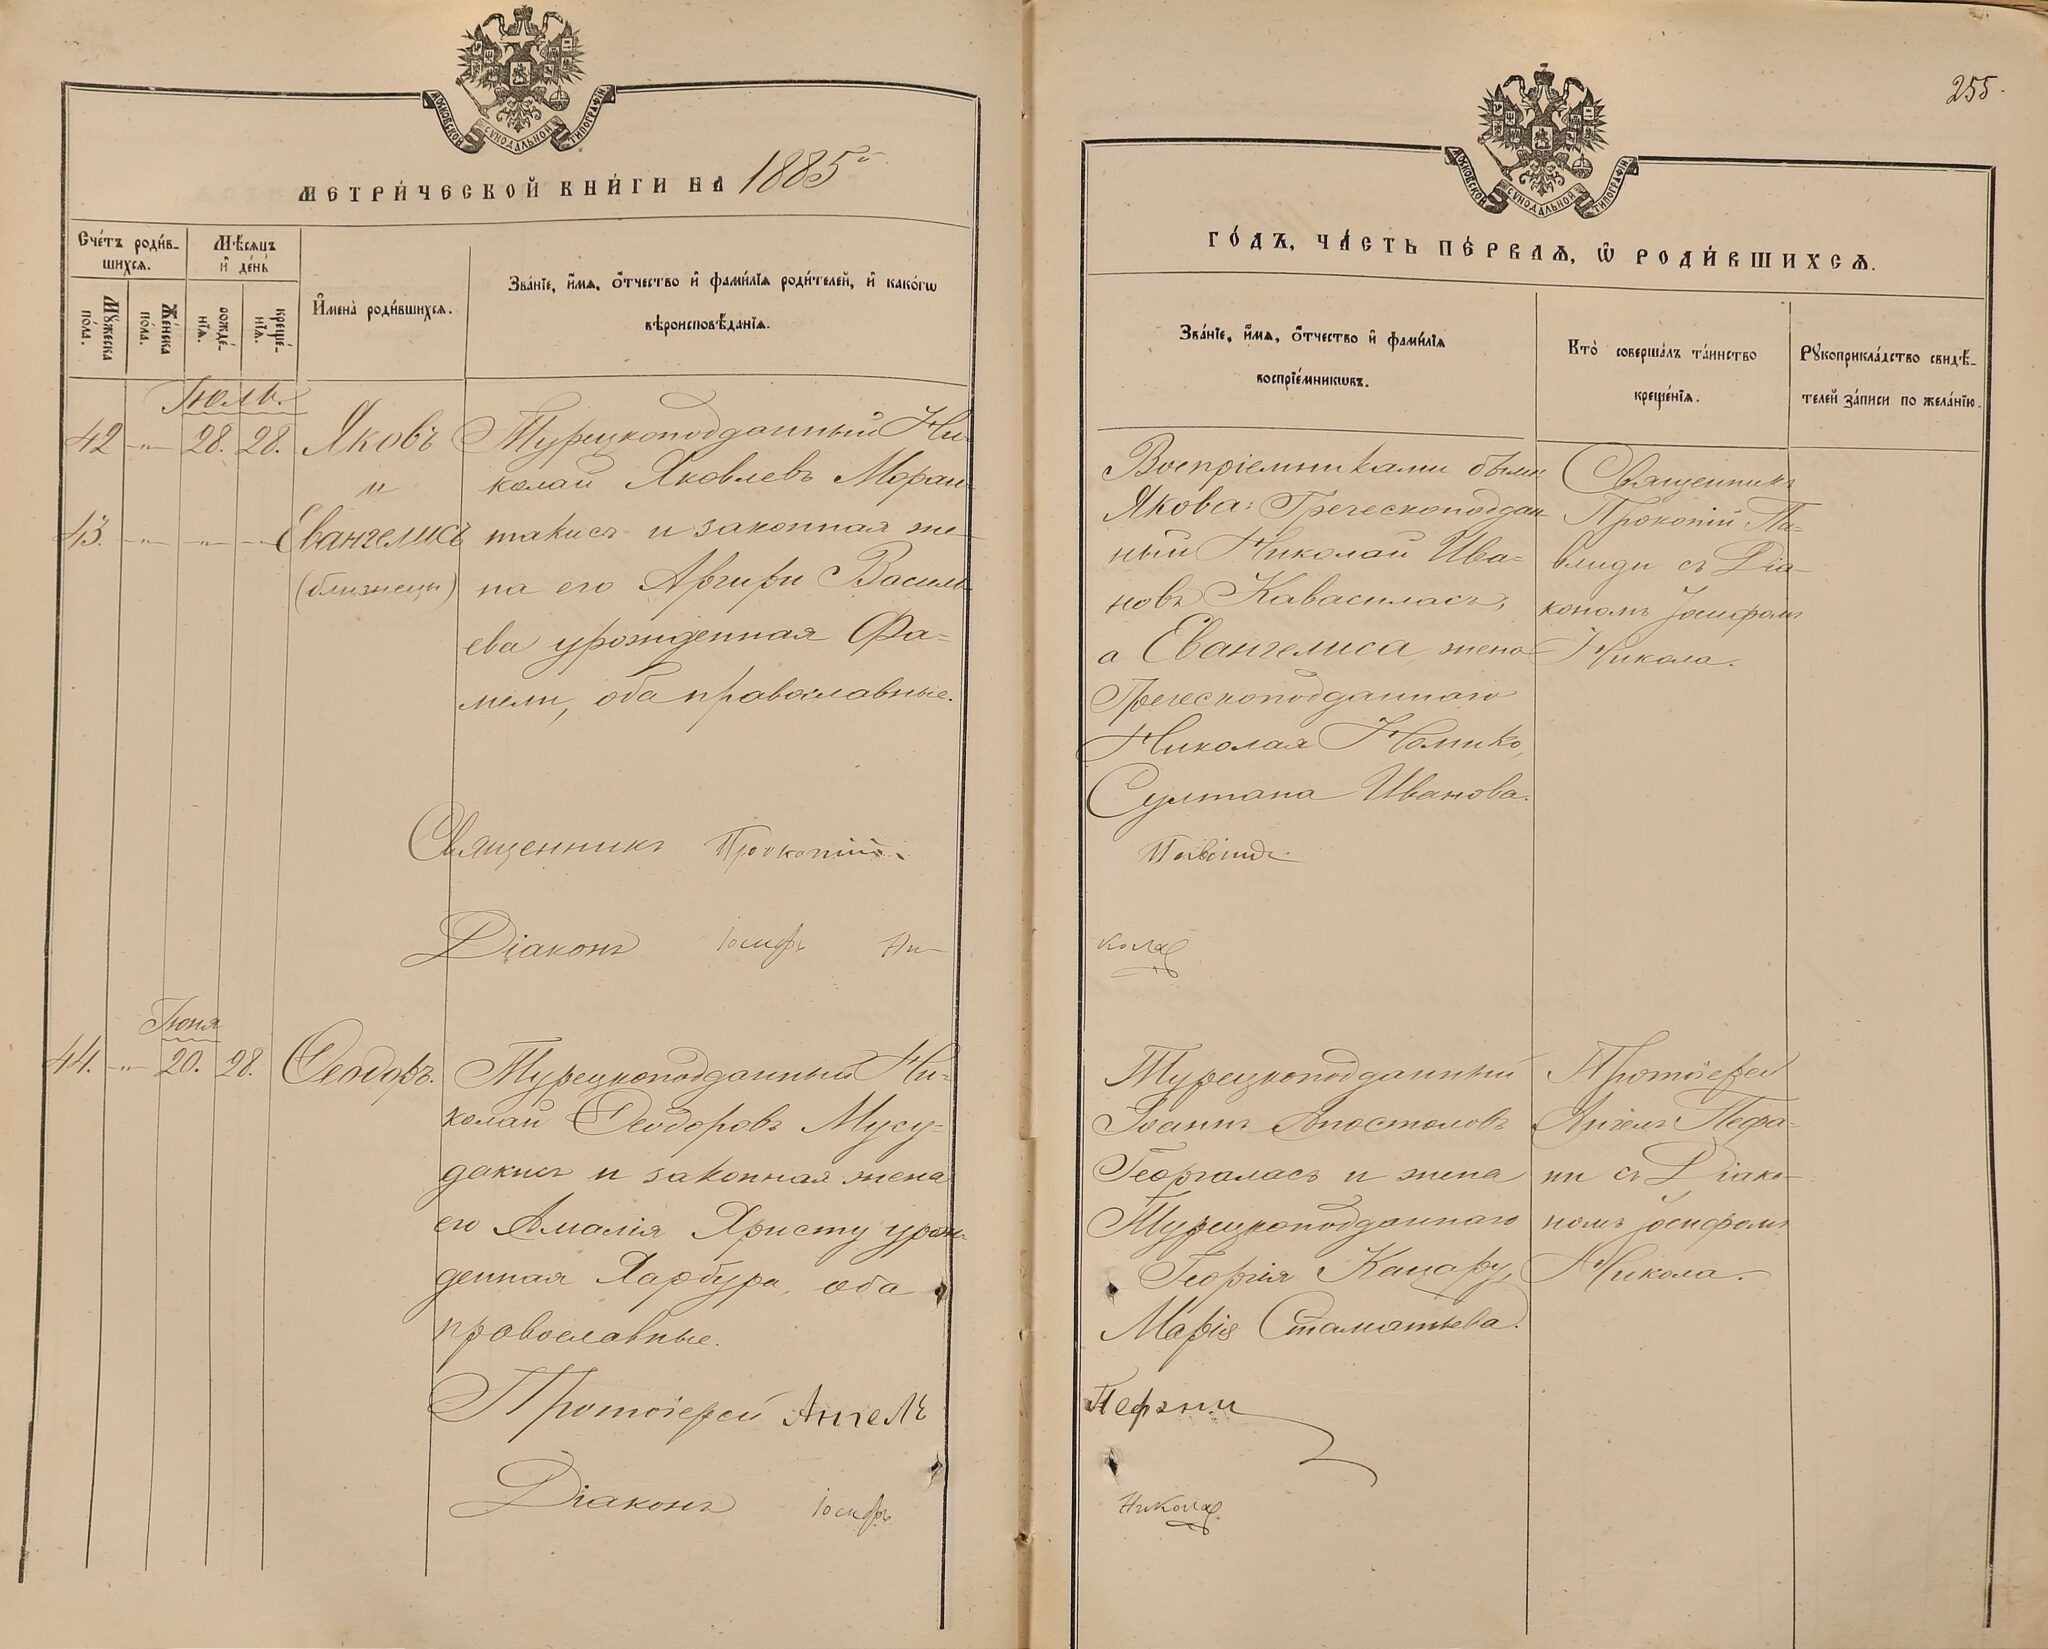 МОСКОВСКОЙ СѴНОДАЛЬНОЙ ТИПОГРАФІИ
МЕТРИ́ЧЕСКОЙ КНИ́ГИ НА 1885й
Сче́тъ роди́в-
шихсѧ.
Мѣ́сѧцъ
и҆ де́нь
Мꙋ́жеска
по́ла.
Же́нска
по́ла.
рожде́-
нїѧ.
креще́-
нїѧ.
И҆мена̀ роди́вшихсѧ.
Зва́нїе, и҆́мѧ, ѻ҆́тчество и҆ фами́лїѧ роди́телей, и҆ како́гѡ
вѣроисповѣ́данїѧ.
Іюль.
42 -"- 28. 28. Яковъ Турецкоподданный Ни-
и колай Яковлевъ Моран-
43. -"- -"- -"- Евангелисъ такисъ и законная же-
(близнецы) на его Аргири Василь-
ева урожденная Фа-
мели, оба православные.
Священникъ Прокопій
Діаконъ Іосифъ Ни-
Іюня
44. -"- 20. 28. Ѳеодоръ. Турецкоподданный Ни-
колай Ѳеодоровъ Мусу-
дакисъ и законная жена
его Амалія Христу урож-
денная Харбури, оба
православные.
Протоіерей Ангелъ
Діаконъ Іосифъ
255.
МОСКОВСКОЙ СѴНОДАЛЬНОЙ ТИПОГРАФІИ
ГО́ДЪ, ЧА́СТЬ ПЕ́РВАѦ, Ѽ РОДИ́ВШИХСѦ.
Зва́нїе, и҆́мѧ, ѻ҆́тчество и҆ фами́лїѧ
воспрїе́мникѡвъ.
Кто̀ соверша́лъ та́инство
креще́нїѧ.
Рꙋкоприкла́дство свидѣ́-
телей за́писи по жела́нїю.
Воспріемниками были
Якова: Греческоподдан-
ный Николай Ива-
новъ Кавасиласъ,
а Евангелиса, жена
Греческоподданнаго
Николая Номико,
Султана Иванова.
Священникъ
Прокопій Па-
влиди съ Діа-
кономъ Іосифомъ
Никола.
Павлиди
кола
Турецкоподданный
Іоаннъ Апостоловъ
Георгаласъ и жена
Турецкоподданнаго
Георгія Кацару,
Марія Стаматьева.
Протоіерей
Ангелъ Пефа-
ни съ Діако-
номъ Іосифомъ
Никола.
Пефани
Никола